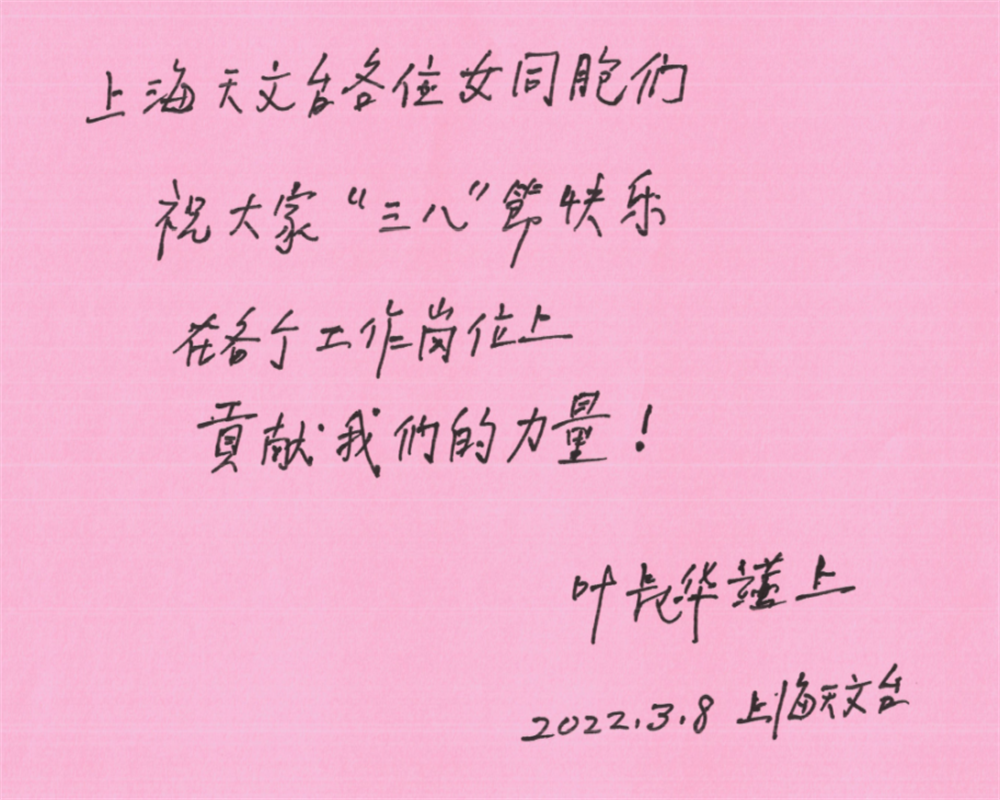 上海天文台各位女同胞们
祝大家“三八”節快乐
在各个工作岗位上
貢献我们的力量！
叶叔华謹上
2022.3.8 上海天文台